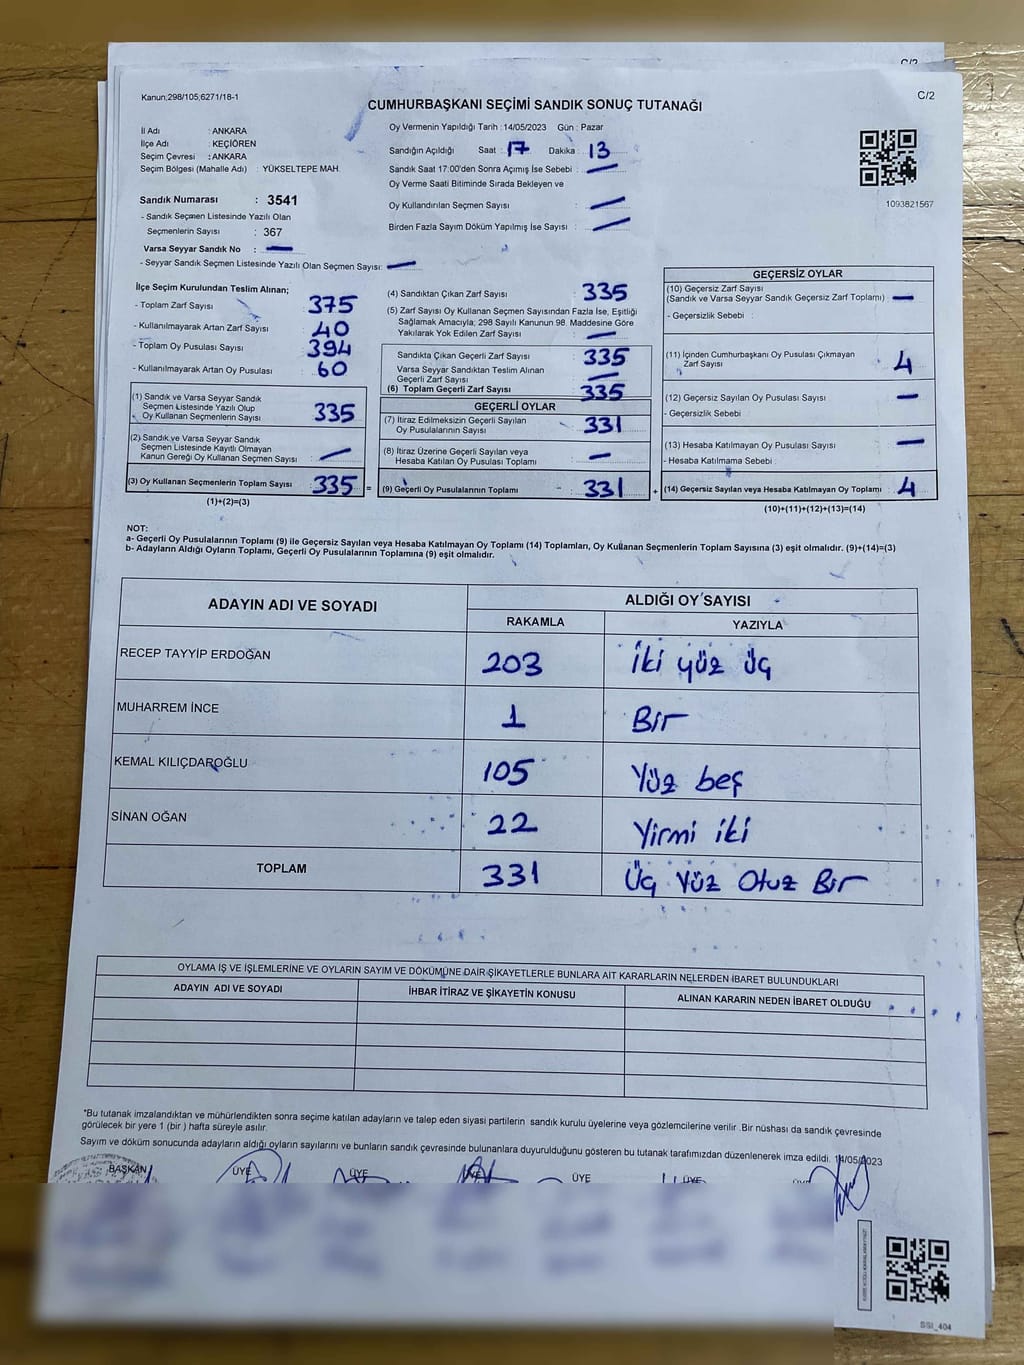 C/2
Kanun;298/105;6271/18-1
C/2
CUMHURBAŞKANI SEÇİMİ SANDIK SONUÇ TUTANAĞI
İl Adı : ANKARA
İlçe Adı : KEÇİÖREN
Seçim Çevresi : ANKARA
Seçim Bölgesi (Mahalle Adı) : YÜKSELTEPE MAH.
Sandık Numarası : 3541
- Sandık Seçmen Listesinde Yazılı Olan
Seçmenlerin Sayısı : 367
Varsa Seyyar Sandık No : —
- Seyyar Sandık Seçmen Listesinde Yazılı Olan Seçmen Sayısı: —
Oy Vermenin Yapıldığı Tarih : 14/05/2023 Gün : Pazar
Sandığın Açıldığı Saat : 17 Dakika : 13
Sandık Saat 17:00'den Sonra Açımış İse Sebebi : —
Oy Verme Saati Bitiminde Sırada Bekleyen ve
Oy Kullandırılan Seçmen Sayısı : —
Birden Fazla Sayım Döküm Yapılmış İse Sayısı : —
1093821567
İlçe Seçim Kurulundan Teslim Alınan;
- Toplam Zarf Sayısı 375
- Kullanılmayarak Artan Zarf Sayısı 40
- Toplam Oy Pusulası Sayısı 394
- Kullanılmayarak Artan Oy Pusulası 60
(1) Sandık ve Varsa Seyyar Sandık
Seçmen Listesinde Yazılı Olup
Oy Kullanan Seçmenlerin Sayısı 335
(2) Sandık ve Varsa Seyyar Sandık
Seçmen Listesinde Kayıtlı Olmayan
Kanun Gereği Oy Kullanan Seçmen Sayısı —
(3) Oy Kullanan Seçmenlerin Toplam Sayısı 335 =
(1)+(2)=(3)
(4) Sandıktan Çıkan Zarf Sayısı : 335
(5) Zarf Sayısı Oy Kullanan Seçmen Sayısından Fazla İse, Eşitliği
Sağlamak Amacıyla; 298 Sayılı Kanunun 98. Maddesine Göre
Yakılarak Yok Edilen Zarf Sayısı : —
Sandıkta Çıkan Geçerli Zarf Sayısı : 335
Varsa Seyyar Sandıktan Teslim Alınan
Geçerli Zarf Sayısı : —
(6) Toplam Geçerli Zarf Sayısı : 335
GEÇERLİ OYLAR
(7) İtiraz Edilmeksizin Geçerli Sayılan
Oy Pusulalarının Sayısı : 331
(8) İtiraz Üzerine Geçerli Sayılan veya
Hesaba Katılan Oy Pusulası Toplamı : —
(9) Geçerli Oy Pusulalarının Toplamı : 331 +
GEÇERSİZ OYLAR
(10) Geçersiz Zarf Sayısı
(Sandık ve Varsa Seyyar Sandık Geçersiz Zarf Toplamı) : —
- Geçersizlik Sebebi :
(11) İçinden Cumhurbaşkanı Oy Pusulası Çıkmayan
Zarf Sayısı : 4
(12) Geçersiz Sayılan Oy Pusulası Sayısı : —
- Geçersizlik Sebebi :
(13) Hesaba Katılmayan Oy Pusulası Sayısı : —
- Hesaba Katılmama Sebebi :
(14) Geçersiz Sayılan veya Hesaba Katılmayan Oy Toplamı : 4
(10)+(11)+(12)+(13)=(14)
NOT:
a- Geçerli Oy Pusulasının Toplamı (9) ile Geçersiz Sayılan veya Hesaba Katılmayan Oy Toplamı (14) Toplamları, Oy Kullanan Seçmenlerin Toplam Sayısına (3) eşit olmalıdır. (9)+(14)=(3)
b- Adayların Aldığı Oyların Toplamı, Geçerli Oy Pusulalarının Toplamına (9) eşit olmalıdır.
ADAYIN ADI VE SOYADI ALDIĞI OY SAYISI
RAKAMLA YAZIYLA
RECEP TAYYİP ERDOĞAN 203 İki yüz üç
MUHARREM İNCE 1 Bir
KEMAL KILIÇDAROĞLU 105 Yüz beş
SİNAN OĞAN 22 Yirmi iki
TOPLAM 331 Üç Yüz Otuz Bir
OYLAMA İŞ VE İŞLEMLERİNE VE OYLARIN SAYIM VE DÖKÜMÜNE DAİR ŞİKAYETLERLE BUNLARA AİT KARARLARIN NELERDEN İBARET BULUNDUKLARI
ADAYIN ADI VE SOYADI İHBAR İTİRAZ VE ŞİKAYETİN KONUSU ALINAN KARARIN NEDEN İBARET OLDUĞU
*Bu tutanak imzalandıktan ve mühürlendikten sonra seçime katılan adayların ve talep eden siyasi partilerin sandık kurulu üyelerine veya gözlemcilerine verilir. Bir nüshası da sandık çevresinde
görülecek bir yere 1 (bir) hafta süreyle asılır.
Sayım ve döküm sonucunda adayların aldığı oyların sayılarını ve bunların sandık çevresinde bulunanlara duyurulduğunu gösteren bu tutanak tarafımızdan düzenlenerek imza edildi. 14/05/2023
BAŞKAN ÜYE ÜYE ÜYE ÜYE ÜYE ÜYE
SSI_404